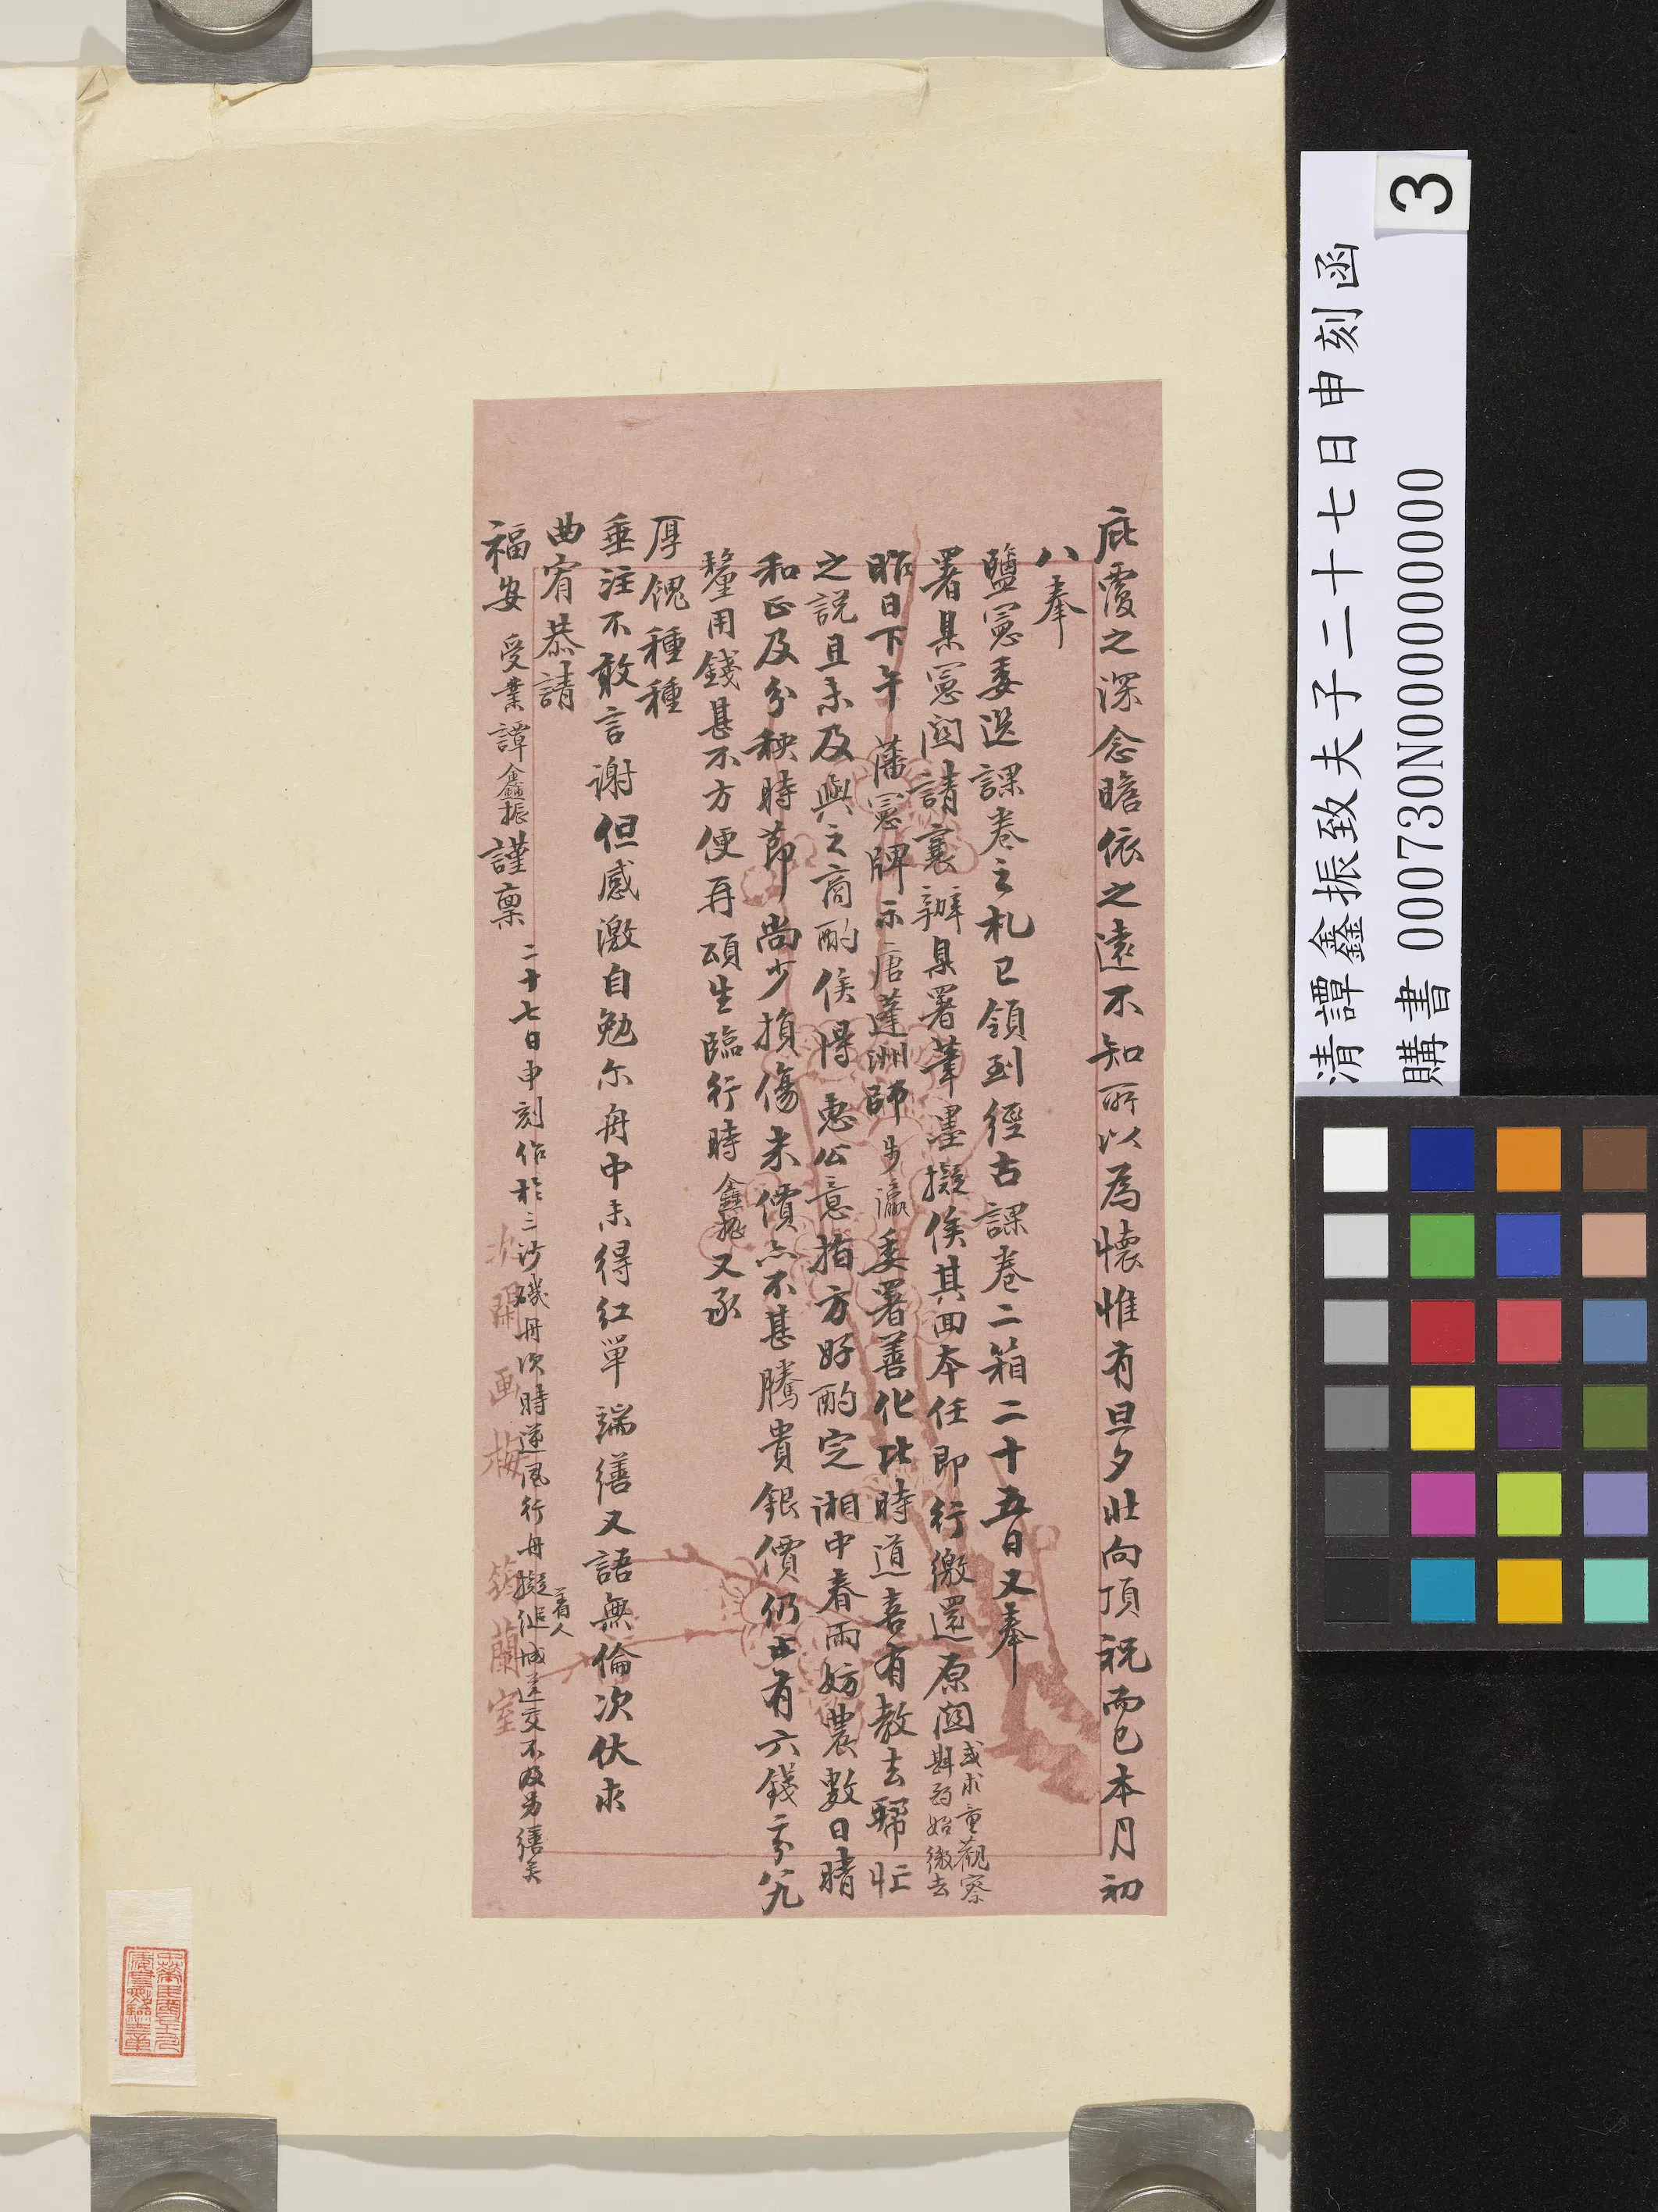 庇覆之深念瞻依之遠不知所以為懷惟有旦夕北向頂祝而已本月初
八奉
鹽憲委送課卷之札已領到經古課卷二箱二十五日又奉
署臬憲函請襄辦臬署筆墨擬俟其回本任即行繳還原函
或求童觀察
始繳去
昨日下午 藩憲牌示唐蓬洲師步瀛委署善化比時道喜有教去歸忙
之説且未及與之商酌俟得惠公意指方好酌定湘中春雨妨農數日晴
和正及分秧時節尚少損傷米價亦不甚騰貴銀價仍止有六錢零分
釐用錢甚不方便再頌生臨行時鑫振又承
厚餽種種
垂注不敢言謝但感激自勉尔舟中未得紅單端繕又語無倫次伏求
曲宥恭請
福安 受業譚鑫振謹稟
二十七日申刻作於三沙磯舟次時逆風行舟擬着人進城送交不及另繕矣
沈蘭画梅
蘭室
清譚鑫振致夫子二十七日申刻函
購書 000730N000000000
3